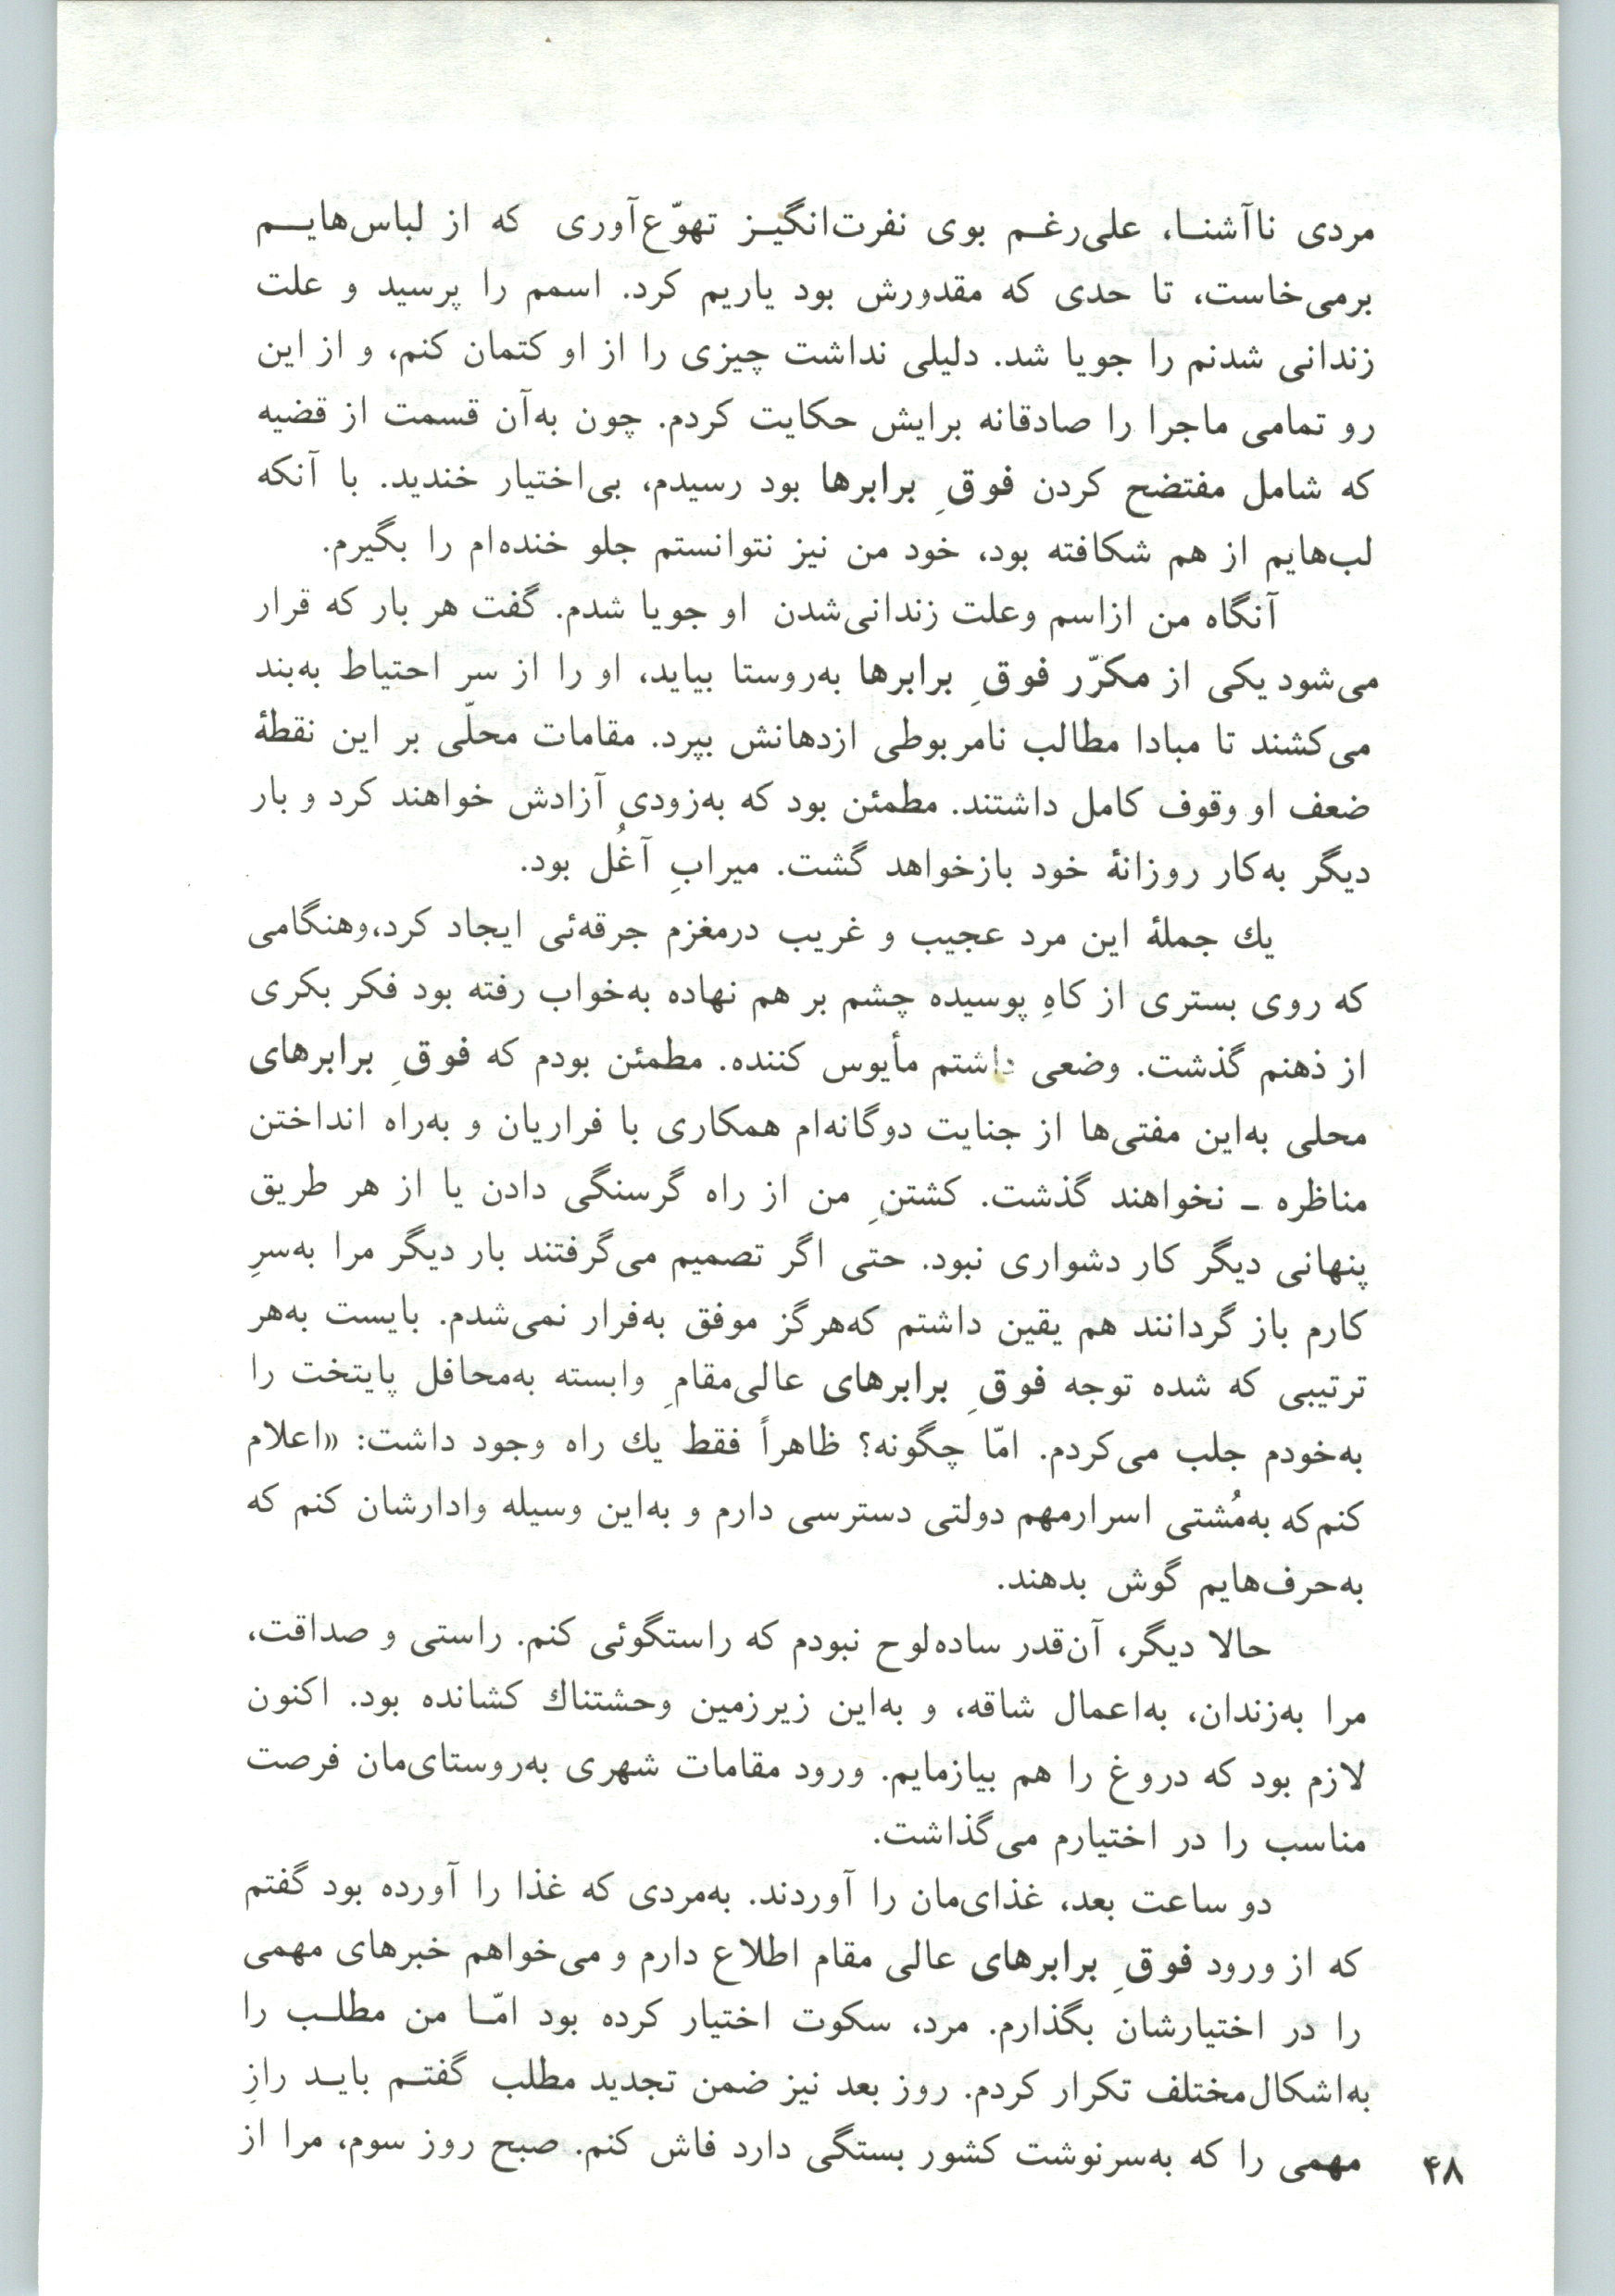 مردی ناآشنـا، علی‌رغـم بوی نفرت‌انگیـز تهوّع‌آوری که از لباس‌هایـم
برمی‌خاست، تا حدی که مقدورش بود یاریم کرد. اسمم را پرسید و علت
زندانی شدنم را جویا شد. دلیلی نداشت چیزی را از او کتمان کنم، و از این
رو تمامی ماجرا را صادقانه برایش حکایت کردم. چون به‌آن قسمت از قضیه
که شامل مفتضح کردن فوقِ برابرها بود رسیدم، بی‌اختیار خندید. با آنکه
لب‌هایم از هم شکافته بود، خود من نیز نتوانستم جلو خنده‌ام را بگیرم.
آنگاه من ازاسم وعلت زندانی‌شدن او جویا شدم. گفت هر بار که قرار
می‌شود یکی از مکرّر فوقِ برابرها به‌روستا بیاید، او را از سر احتیاط به‌بند
می‌کشند تا مبادا مطالب نامربوطی ازدهانش بپرد. مقامات محلّی بر این نقطهٔ
ضعف او وقوف کامل داشتند. مطمئن بود که به‌زودی آزادش خواهند کرد و بار
دیگر به‌کار روزانهٔ خود بازخواهد گشت. میرابِ آغُل بود.
یك جملهٔ این مرد عجیب و غریب درمغزم جرقه‌ئی ایجاد کرد،وهنگامی
که روی بستری از کاهِ پوسیده چشم بر هم نهاده به‌خواب رفته بود فکر بکری
از ذهنم گذشت. وضعی داشتم مأیوس کننده. مطمئن بودم که فوقِ برابرهای
محلی به‌این مفتی‌ها از جنایت دوگانه‌ام همکاری با فراریان و به‌راه انداختن
مناظره ـ نخواهند گذشت. کشتنِ من از راه گرسنگی دادن یا از هر طریق
پنهانی دیگر کار دشواری نبود. حتی اگر تصمیم می‌گرفتند بار دیگر مرا به‌سرِ
کارم باز گردانند هم یقین داشتم که‌هرگز موفق به‌فرار نمی‌شدم. بایست به‌هر
ترتیبی که شده توجه فوقِ برابرهای عالی‌مقامِ وابسته به‌محافل پایتخت را
به‌خودم جلب می‌کردم. امّا چگونه؟ ظاهراً فقط یك راه وجود داشت: «اعلام
کنم‌که به‌مُشتی اسرارمهم دولتی دسترسی دارم و به‌این وسیله وادارشان کنم که
به‌حرف‌هایم گوش بدهند.
حالا دیگر، آن‌قدر ساده‌لوح نبودم که راستگوئی کنم. راستی و صداقت،
مرا به‌زندان، به‌اعمال شاقه، و به‌این زیرزمین وحشتناك کشانده بود. اکنون
لازم بود که دروغ را هم بیازمایم. ورود مقامات شهری به‌روستای‌مان فرصت
مناسب را در اختیارم می‌گذاشت.
دو ساعت بعد، غذای‌مان را آوردند. به‌مردی که غذا را آورده بود گفتم
که از ورود فوقِ برابرهای عالی مقام اطلاع دارم و می‌خواهم خبرهای مهمی
را در اختیارشان بگذارم. مرد، سکوت اختیار کرده بود امّـا من مطلـب را
به‌اشکال‌مختلف تکرار کردم. روز بعد نیز ضمن تجدید مطلب گفتـم بایـد رازِ
مهمی را که به‌سرنوشت کشور بستگی دارد فاش کنم. صبح روز سوم، مرا از
۴۸